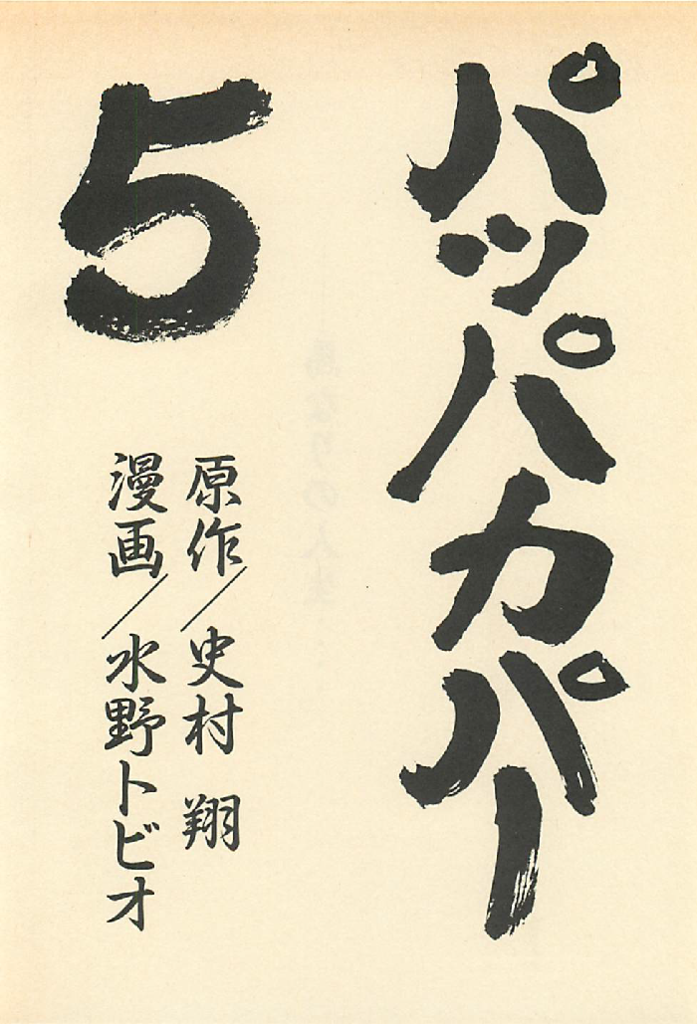 パッパカパー
5
原作／史村 翔
漫画／水野トビオ